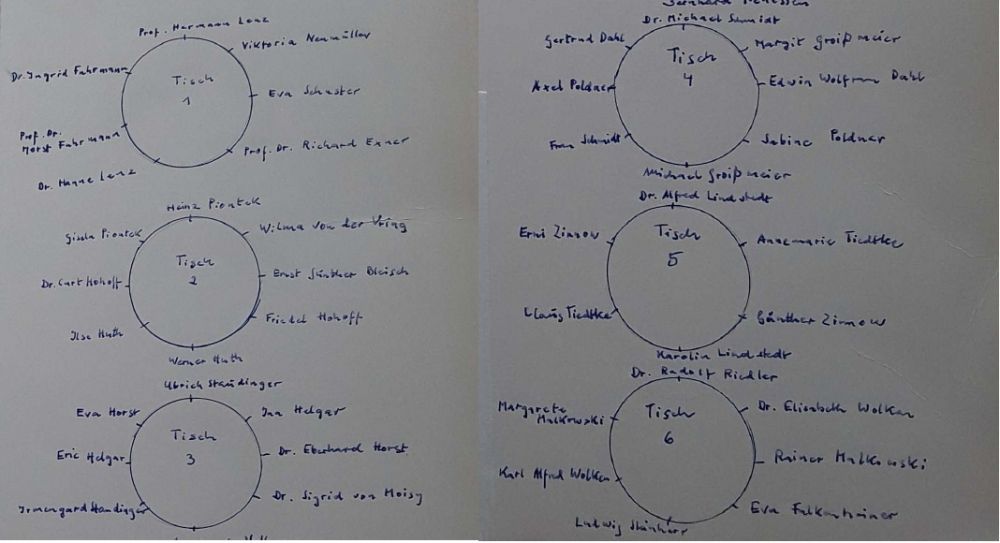 Prof. Hermann Lenz
Viktoria Neumüller
Dr. Ingrid Fuhrmann
Tisch
1
Eva Schuster
Prof. Dr.
Horst Fuhrmann
Prof. Dr. Richard Exner
Dr. Hanne Lenz
Heinz Piontek
Gisela Piontek
Wilma von der Vring
Tisch
2
Dr. Curt Hohoff
Ernst Günther Bleisch
Friedel Hohoff
Ilse Huth
Werner Huth
Ulrich Staudinger
Eva Horst
Ina Helgar
Tisch
3
Eric Helgar
Dr. Eberhard Horst
Dr. Sigrid von Moisy
Irmengard Staudinger
Dr. Michael Schmidt
Gertrud Dahl
Margit Groißmeier
Tisch
4
Axel Poldner
Edwin Wolfram Dahl
Frau Schmidt
Sabine Poldner
Michael Groißmeier
Dr. Alfred Lindstedt
Erni Zinnow
Annemarie Tiedtke
Tisch
5
Claus Tiedtke
Günther Zinnow
Karolin Lindstedt
Dr. Rudolf Riedler
Margarete
Malkowski
Dr. Elisabeth Wolken
Tisch
6
Karl Alfred Wolken
Rainer Malkowski
Eva Falkenhainer
Ludwig Steinherr